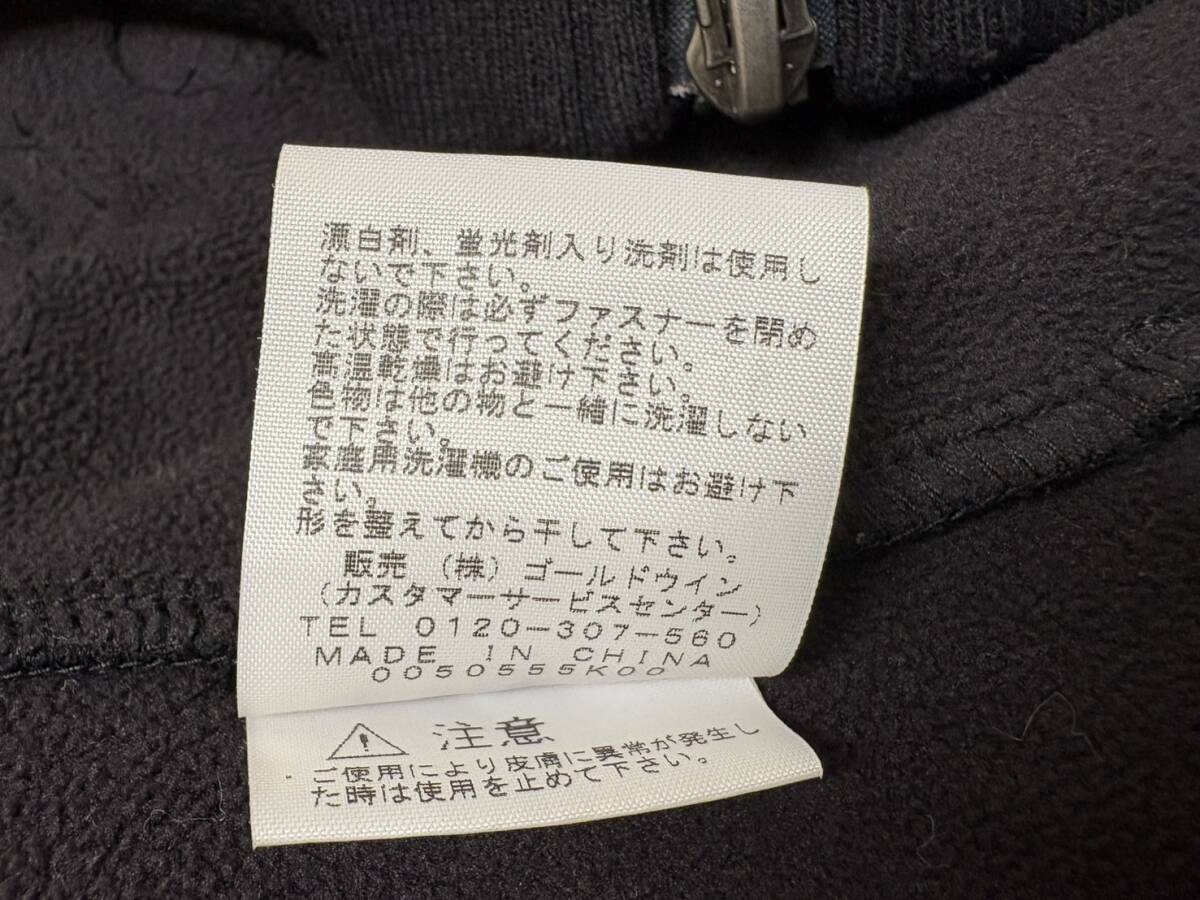 漂白剤、蛍光剤入り洗剤は使用し
ないで下さい。
洗濯の際は必ずファスナーを閉め
た状態で行ってください。
高温乾燥はお避け下さい。
色物は他の物と一緒に洗濯しない
で下さい。
家庭用洗濯機のご使用はお避け下
さい。
形を整えてから干して下さい。
販売 (株) ゴールドウイン
(カスタマーサービスセンター)
TEL 0120-307-560
MADE IN CHINA
0050555K00
注意
ご使用により皮膚に異常が発生し
た時は使用を止めて下さい。